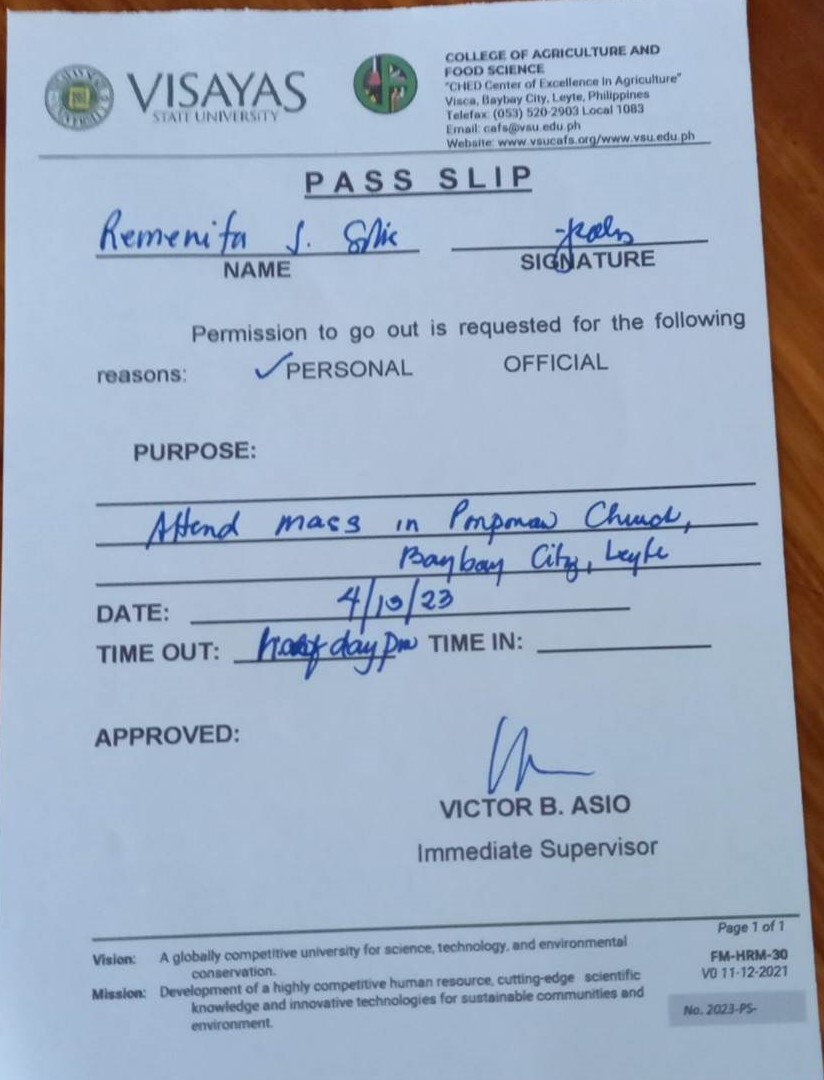 VISAYAS
STATE UNIVERSITY
COLLEGE OF AGRICULTURE AND
FOOD SCIENCE
"CHED Center of Excellence in Agriculture"
Visca, Baybay City, Leyte, Philippines
Telefax: (053) 520-2903 Local 1083
Email: cafs@vsu.edu.ph
Website: www.vsucafs.org/www.vsu.edu.ph
PASS SLIP
Remenita J.
NAME SIGNATURE
Permission to go out is requested for the following
reasons: ✓PERSONAL OFFICIAL
PURPOSE:
Attend mass in Church,
Baybay City, Leyte
DATE: 4/13/23
TIME OUT: half day pm TIME IN:
APPROVED:
VICTOR B. ASIO
Immediate Supervisor
Page 1 of 1
Vision: A globally competitive university for science, technology, and environmental
conservation.
Mission: Development of a highly competitive human resource, cutting-edge scientific
knowledge and innovative technologies for sustainable communities and
environment.
FM-HRM-30
V0 11-12-2021
No. 2023-PS-